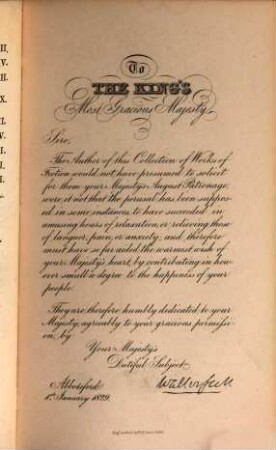 II,
IV.
II.
X.
I.
V.
I.
I.
I.
To
THE KING'S
Most Gracious Majesty.
Sire,
The Author of this Collection of Works of
Fiction would not have presumed to solicit
for them your Majesty's August Patronage,
were it not that the perusal has been suppos-
ed in some instances, to have succeeded in
amusing hours of relaxation, or relieving those
of languor, pain, or anxiety; and therefore
must have so far aided the warmest wish of
your Majesty's heart, by contributing in how-
ever small a degree to the happiness of your
people.
They are therefore humbly dedicated to your
Majesty, agreeably to your gracious permissi-
on, by
Your Majesty's
Dutiful Subject
Abbotsford
1st January 1829.
Walter Scott